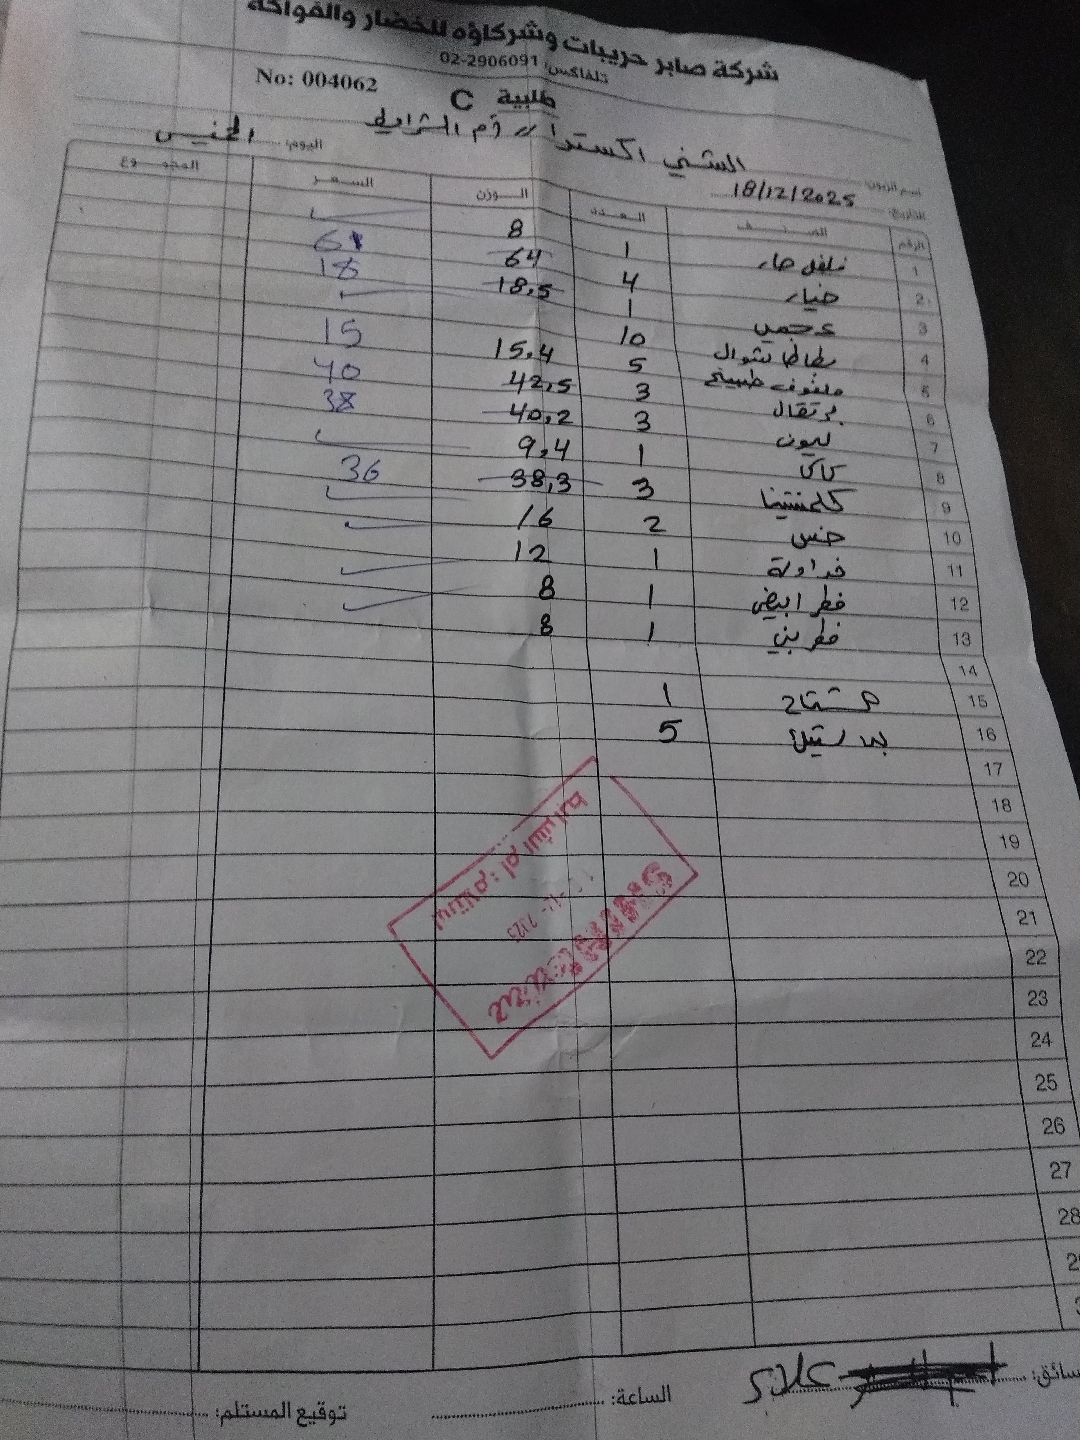 شركة صابر حريبات وشركاؤه للخضار والفواكه
تلفاكس: 02-2906091
No: 004062
طلبية C
اسم الزبون: الشني اكسترا // ام الشرايط
التاريخ: 18/12/2025 اليوم: الخميس
الرقم الصنف العدد الوزن السعر المجموع
1 فلفل حار 1 8
2 خيار 4 64 61
3 عجمي 1 18,5 18
4 بطاطا شوال 10
5 ملفوف طبيخ 5 15,4 15
6 برتقال 3 42,5 40
7 ليمون 3 40,2 38
8 كاكا 1 9,4
9 كلمنتينا 3 38,3 36
10 خس 2 16
11 فراولة 1 12
12 فطر ابيض 1 8
13 فطر بني 1 8
14
15 مشتاح 1
16 بلاستيك 5
17
18
19
20
21
22
23
24
25
26
27
28
استلام: ام الشرايط
السائق: علاء
الساعة:
توقيع المستلم: